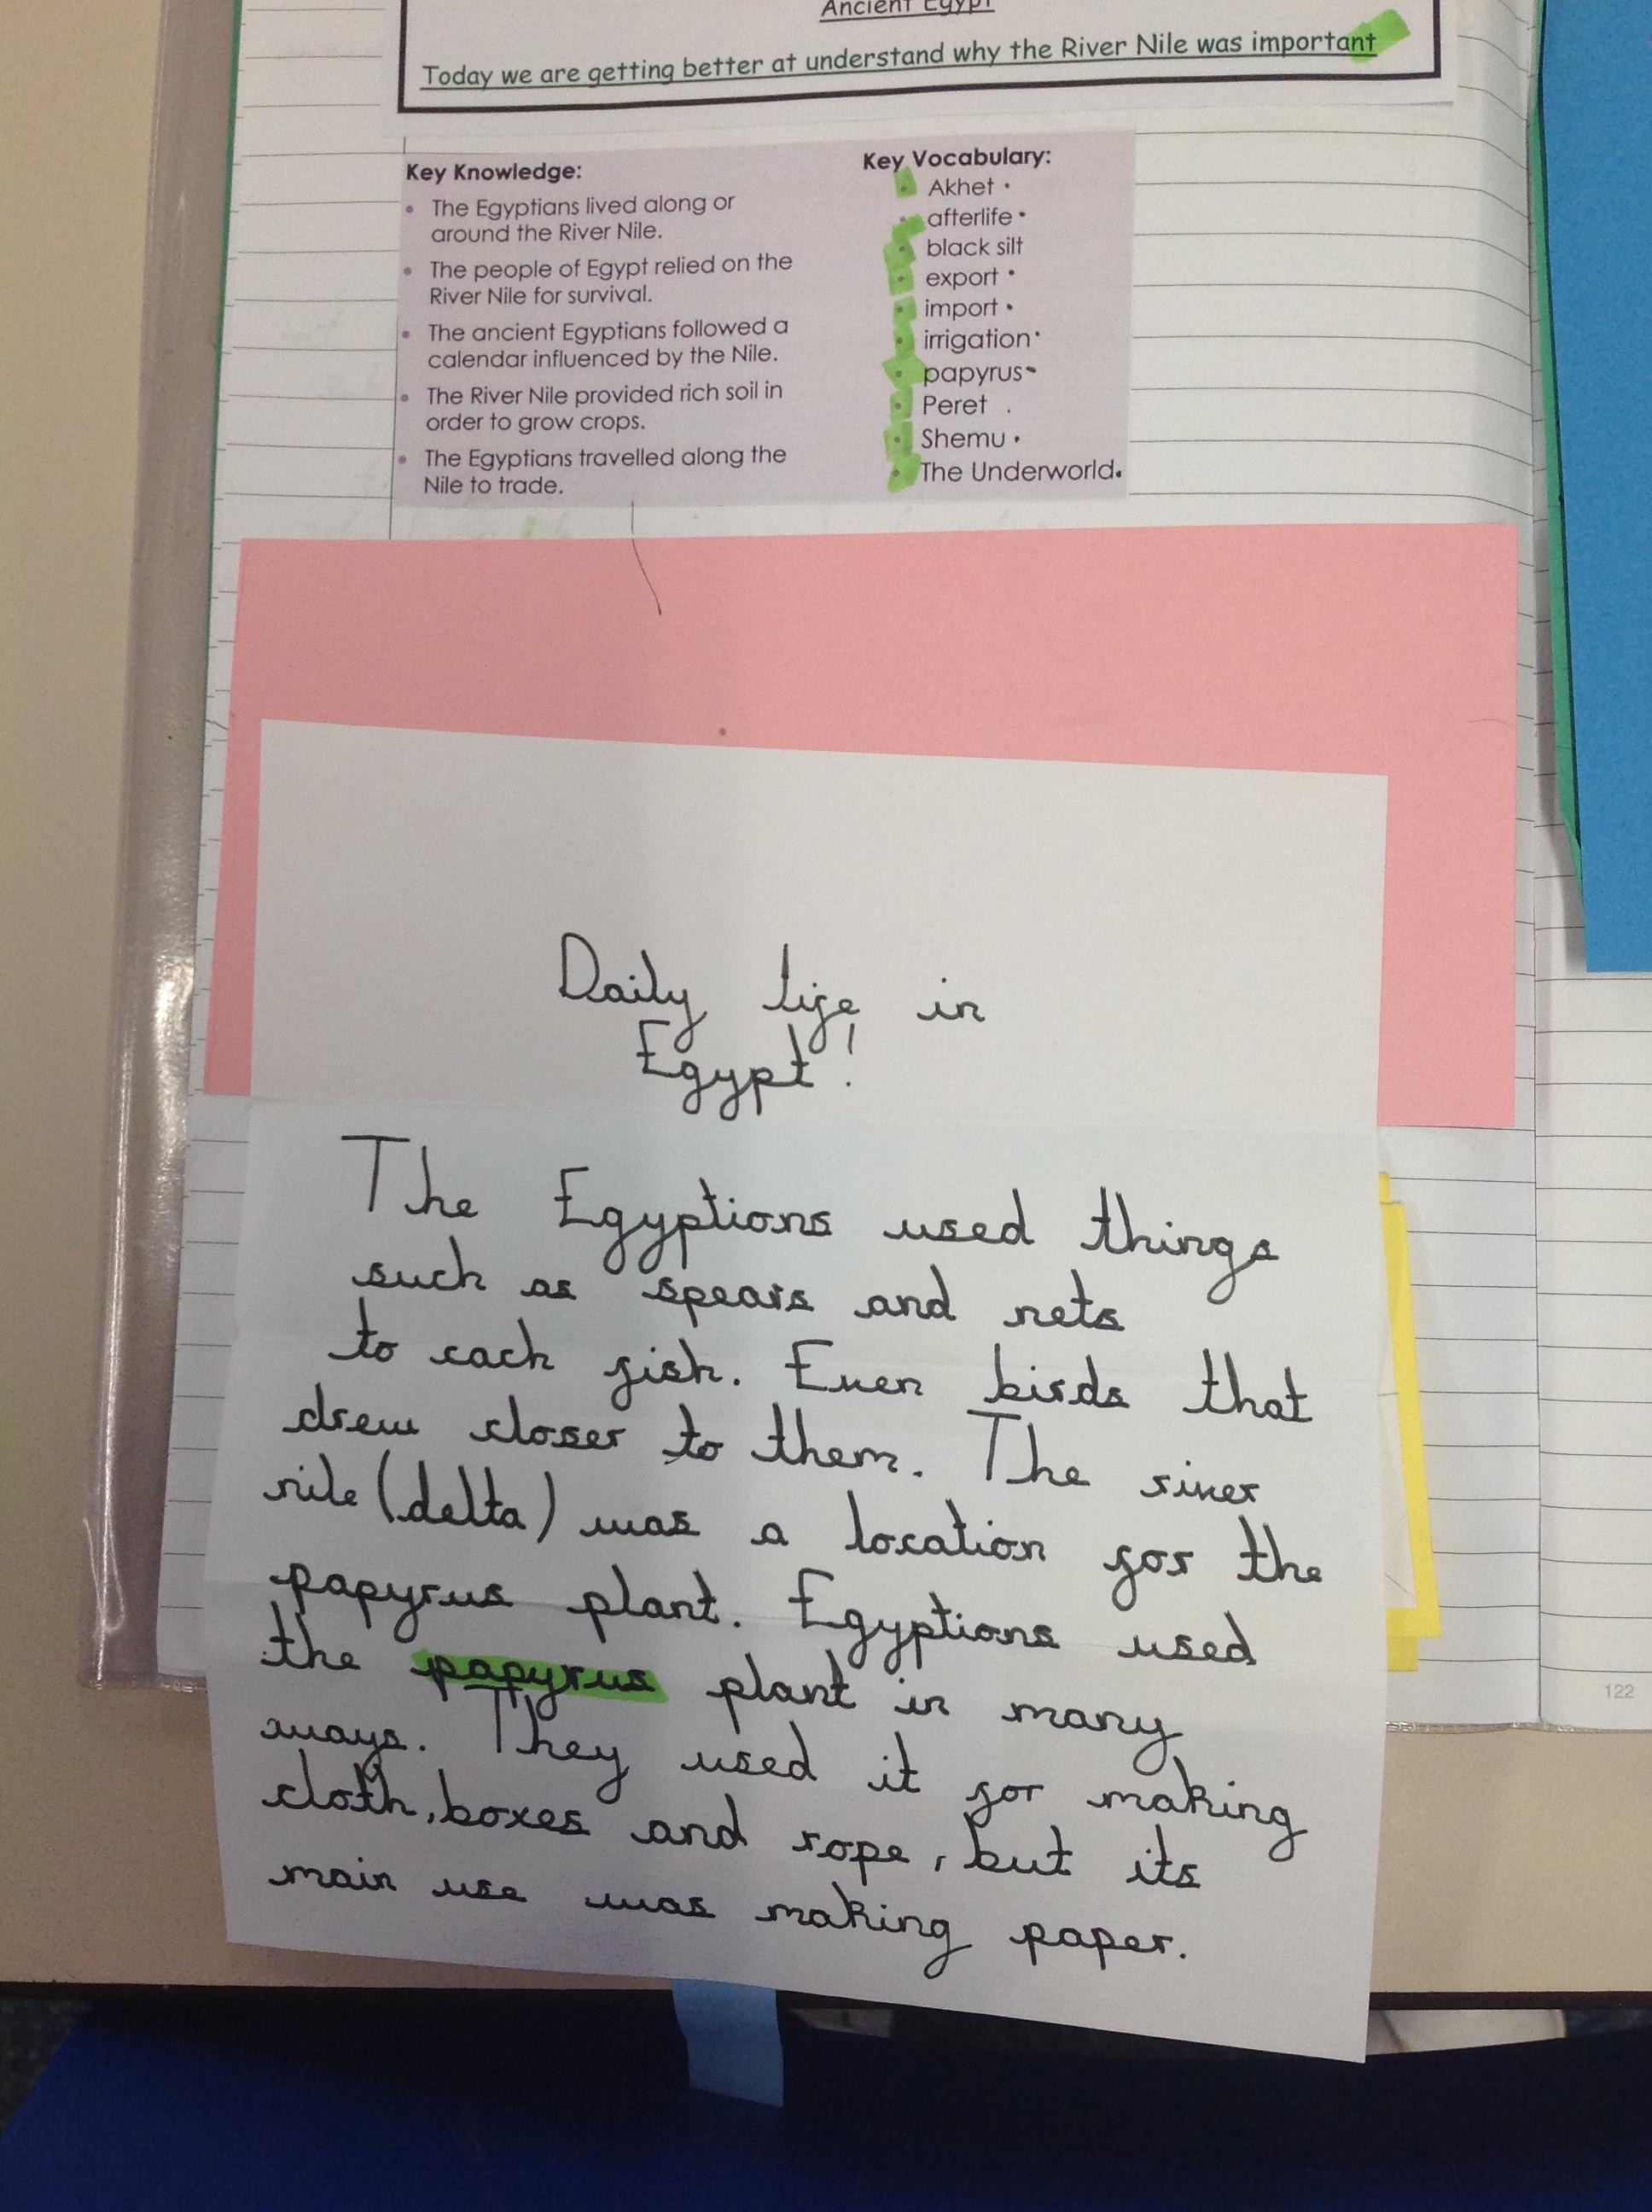 Ancient Egypt
Today we are getting better at understand why the River Nile was important
Key Knowledge:
• The Egyptians lived along or
around the River Nile.
• The people of Egypt relied on the
River Nile for survival.
• The ancient Egyptians followed a
calendar influenced by the Nile.
• The River Nile provided rich soil in
order to grow crops.
• The Egyptians travelled along the
Nile to trade.
Key Vocabulary:
• Akhet
• afterlife
• black silt
• export
• import
• irrigation
• papyrus
• Peret
• Shemu
• The Underworld.
Daily life in
Egypt!
The Egyptions used things
such as spears and nets
to cach fish. Even birds that
drew closer to them. The river
nile (delta) was a location for the
papyrus plant. Egyptions used
the papyrus plant in many
ways. They used it for making
cloth, boxes and rope, but its
main use was making paper.
122